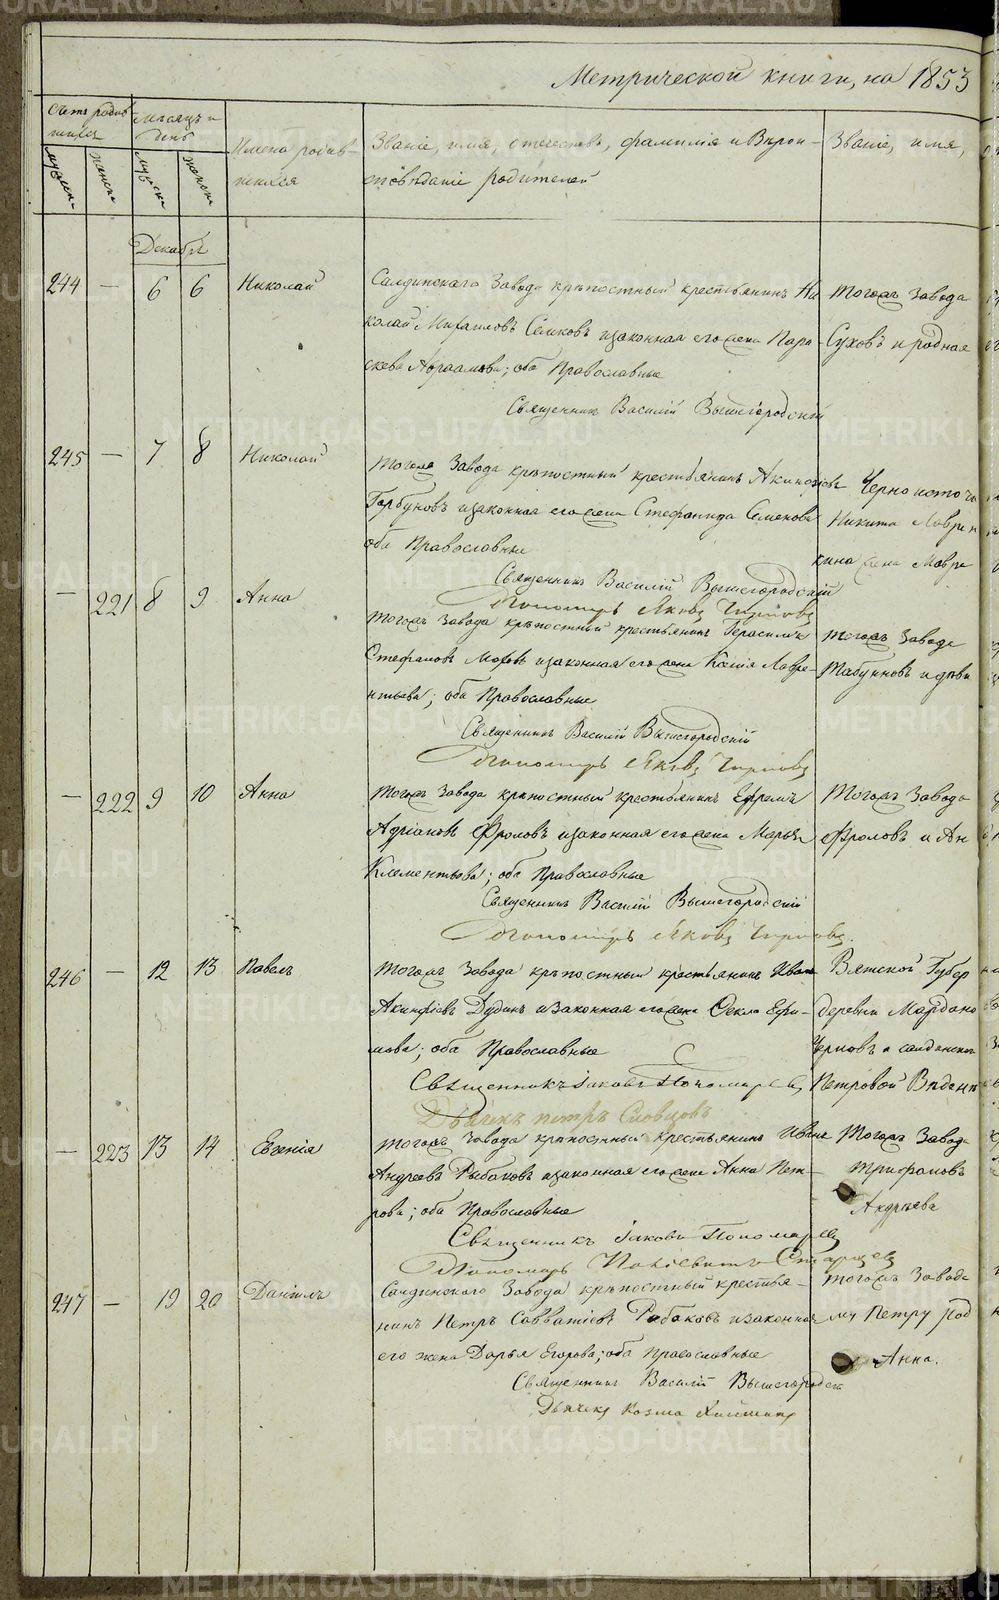 Метрической книги, на 1853
Счетъ родив-
шихся
Мѣсяцъ и
день
мужска
женска
мужска
женска
Имена родив-
шихся
Званіе, имя, отечество, фамилія и Вѣрои-
сповѣданіе родителей
Званіе, имя,
Декабрь
244 — 6 6 Николай
Салдинскаго Завода крѣпостный крестьянинъ Ни
колай Михаиловъ Семковъ и законная его жена Пара-
скева Авраамова; оба Православные
Священникъ Василій Вышегородскій
Тогожъ Завода
Суховъ и родная
245 — 7 8 Николай
Тогоже Завода крѣпостный крестьянинъ Акинфіевъ
Горбуновъ и законная его жена Стефанида Семенова
оба Православные
Священникъ Василій Вышегородскій
Пономарь Яковъ
Черноисточ
Никита Лаврен
кина жена Мавра
— 221 8 9 Анна
Тогожъ Завода крѣпостный крестьянинъ Герасимъ
Стефановъ и законная его жена Ксенія Лавре-
нтьева; оба Православные
Священникъ Василій Вышегородскій
Пономарь Яковъ
Тогожъ Завода
Табунновъ и дѣви
— 222 9 10 Анна
Тогожъ Завода крѣпостный крестьянинъ Ефремъ
Адріановъ Фроловъ и законная его жена Марья
Клементьева; оба Православные
Священникъ Василій Вышегородскій
Пономарь Яковъ
Тогожъ Завода
Фроловъ и Ан
246 — 12 13 Павелъ
Тогожъ Завода крѣпостный крестьянинъ Иванъ
Акинфіевъ Дудинъ и законная его жена Фекла Ефи-
мова; оба Православные
Священникъ Іаковъ Пономаревъ
Дьячекъ Петръ Словцовъ
Вятской Губер
деревни Мардано
Черновъ и салдинска
Петровой
— 223 13 14 Евгенія
Тогожъ Завода крѣпостный крестьянинъ Иванъ
Андреевъ Рыбаковъ и законная его жена Анна Пет-
рова; оба Православные
Священникъ Іаковъ Пономаревъ
Пономарь Старцевъ
Тогожъ Завода
Трифановъ
Андреева
247 — 19 20 Даніилъ
Салдинскаго Завода крѣпостный крестья-
нинъ Петръ Савватіевъ Рыбаковъ и законная
его жена Дарья Егорова; оба Православные
Священникъ Василій Вышегородск
Дьячекъ Козма
Тогожъ Завода
му Петру род
Анна.
METRIKI.GASO-URAL.RU